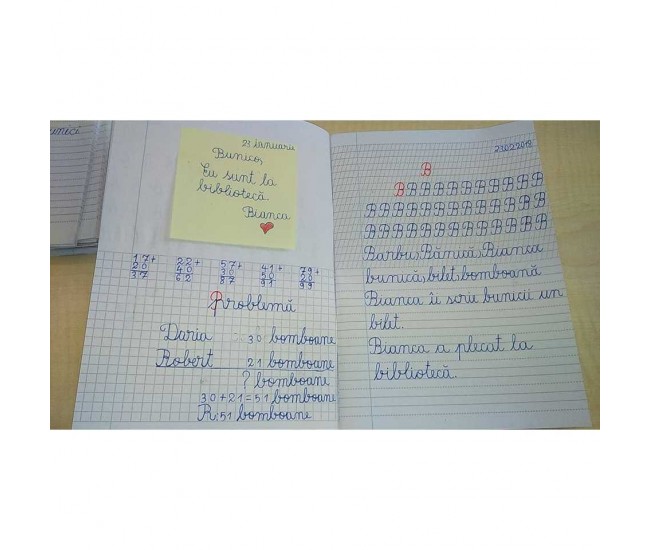 unici
23 ianuarie
Bunico,
Eu sunt la
bibliotecă
Bianca
17+ 22+ 57+ 41+ 79+
20 40 30 50 20
37 62 87 91 99
Problemă
Daria 30 bomboane
Robert 21 bomboane
? bomboane
30+21=51 bomboane
R:51 bomboane
B
B B B B B B B B B B B
B B B B B B B B B B B B B
B B B B B B B B B B B B B
Barbu, Bănică, Bianca
bunică, bilet, bomboană
Bianca îi scrie bunicii un
bilet.
Bianca a plecat la
bibliotecă.